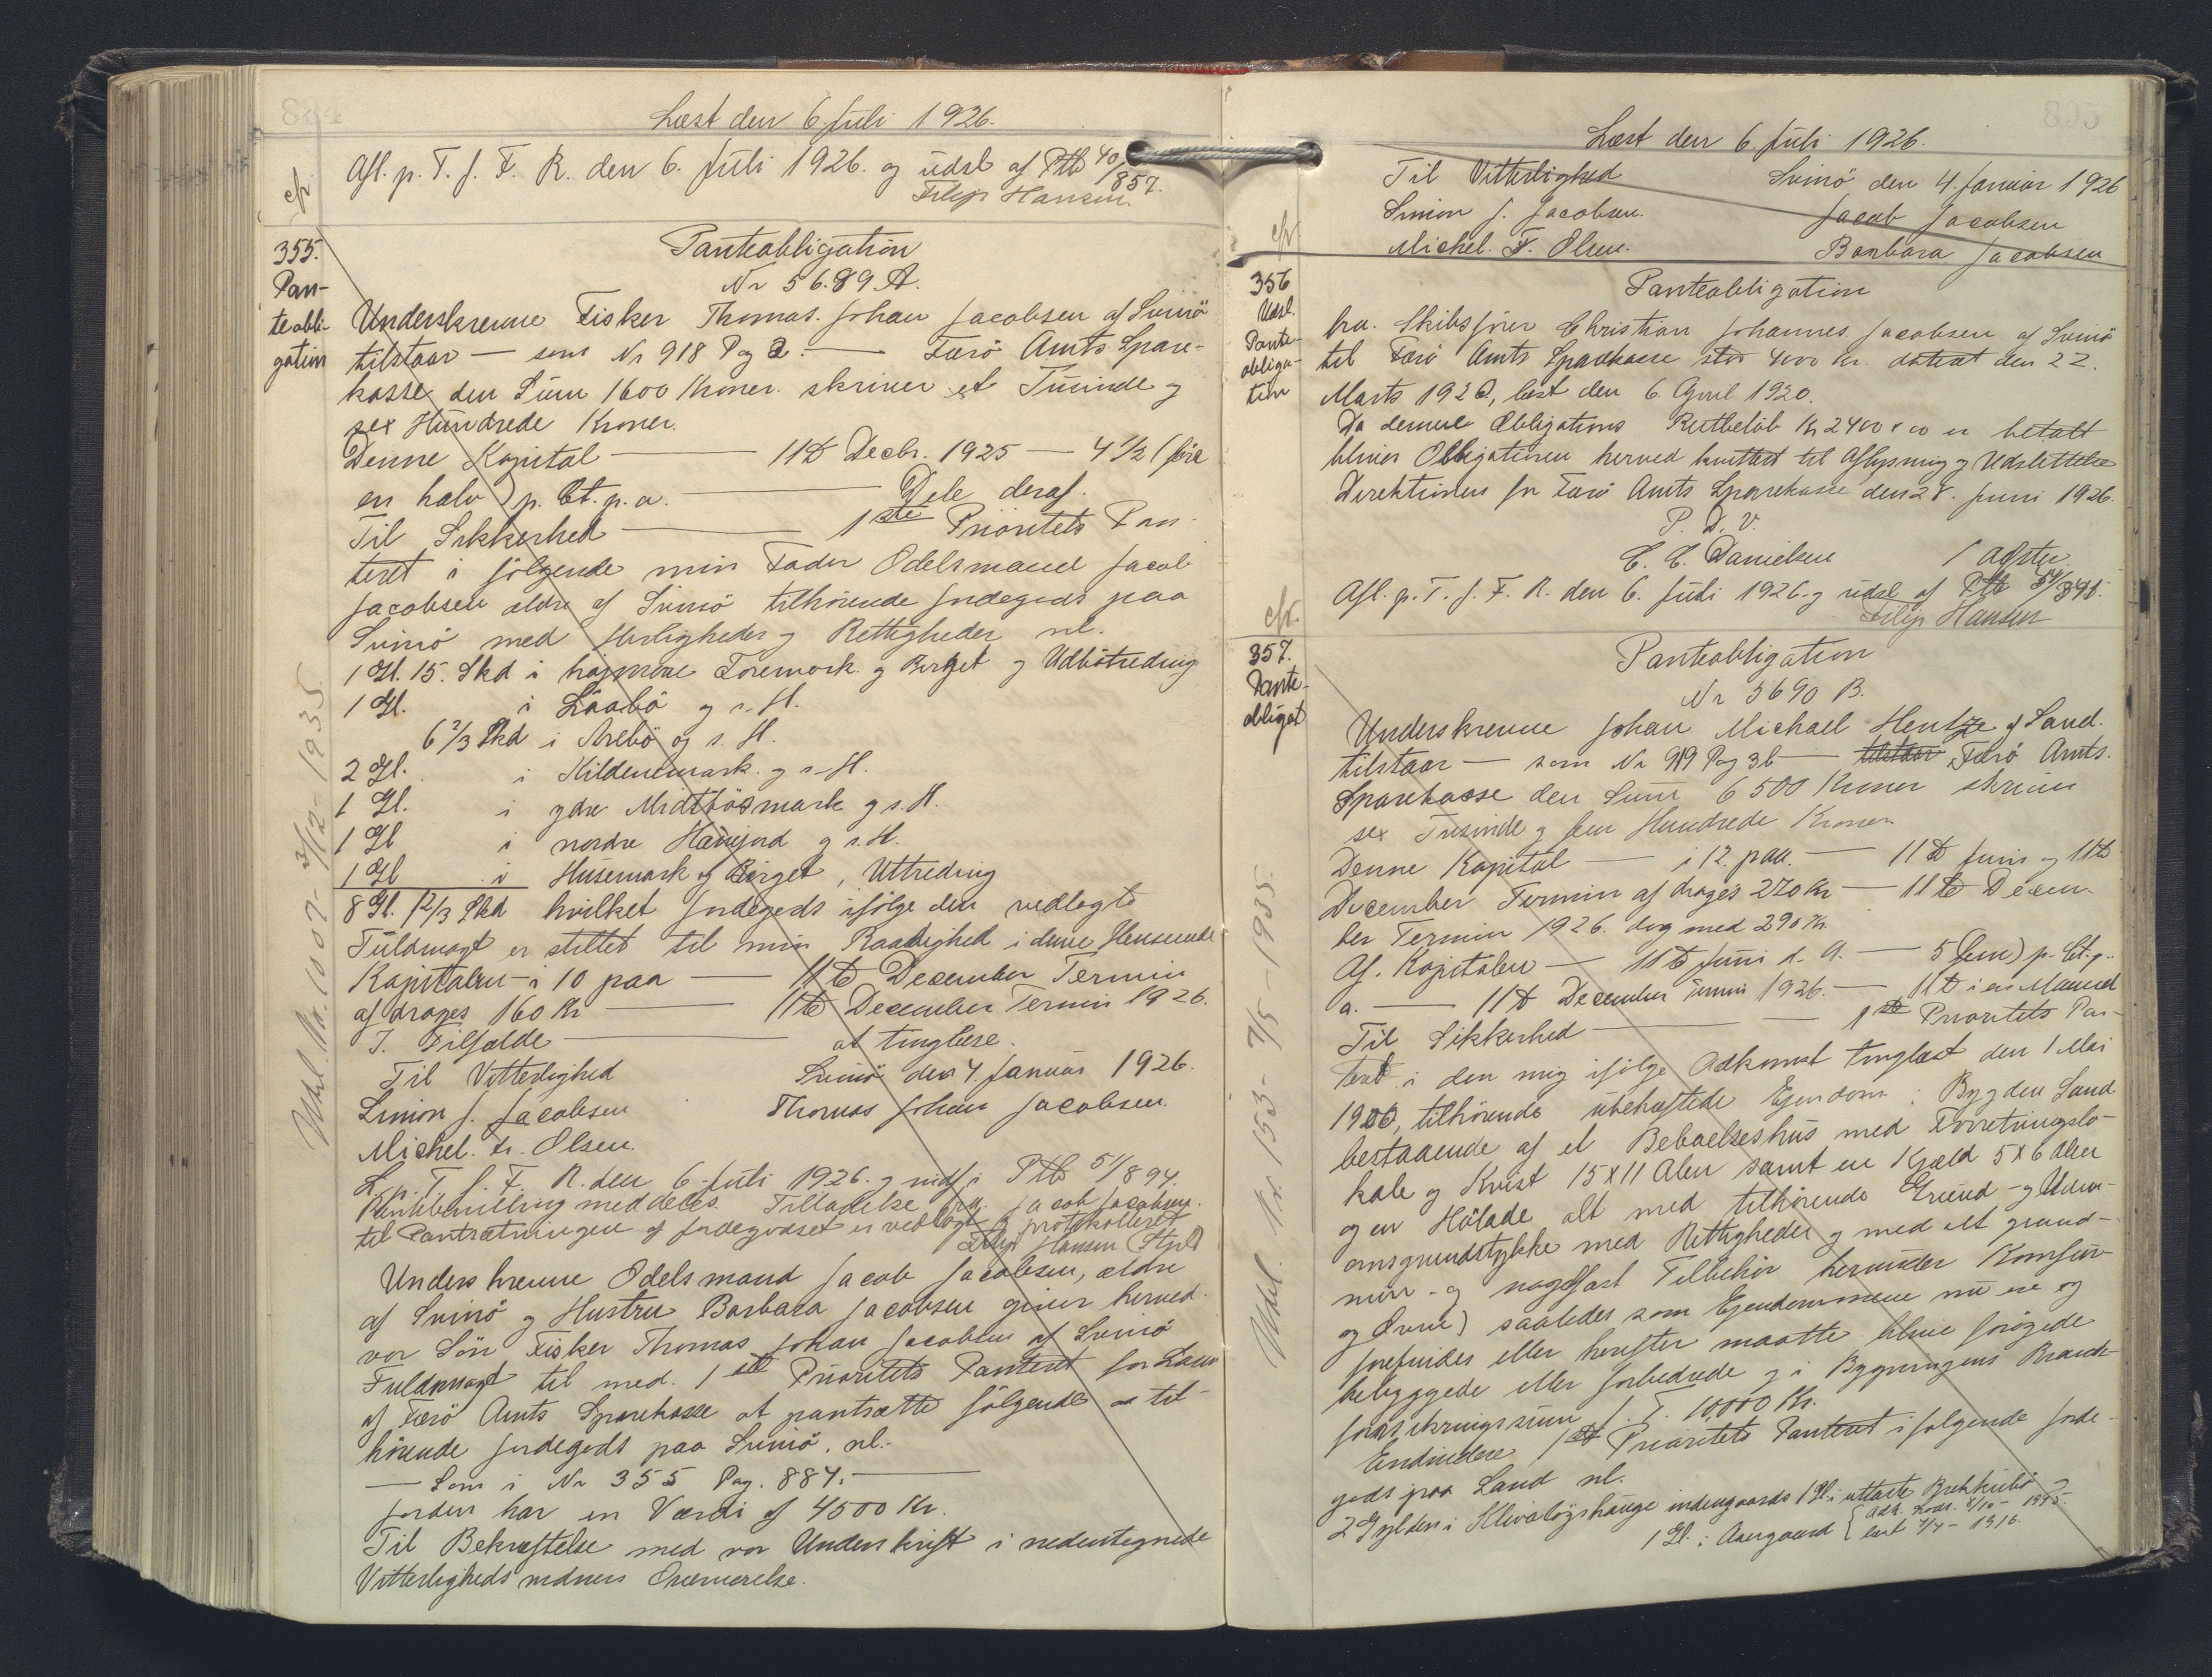 Læst den 6. Juli 1926.
Afl. p. T. f. F. R. den 6. Juli 1926. og udsl af Ptb 40/857.
Filip Hansen.
cfr.
355.
Pan-
teobli-
gation
Panteobligation
Nr 5689 A.
Underskrevne Fisker Thomas Johan Jacobsen af Svinö
tilstaar — som Nr 918 Pag 2. — Færö Amts Spare-
kasse den Sum 1600 Kroner. skriver et Tusinde og
sex Hundrede Kroner.
Denne Kapital — 11te Decbr. 1925 — 4 1/2 (fire
en halv) p. Ct. p. a. — Dele deraf.
Til Sikkerhed — 1ste Prioritets Pan-
teret i følgende min Fader Odelsmand Jacob
Jacobsen ældre af Svinö tilhørende Jordegods paa
Svinö med Herligheder og Rettigheder nl.
1 Gl. 15. Skd i Toremork. og Birget og Udbötreding
1 Gl. i Löabö og s. H.
6 2/3 Skd i Arebö og s. H.
2 Gl. i Kildenemark. og s. H.
1 Gl. i ydre Midtbösmark og s. H.
1 Gl i nordre Haujord og s. H.
1 Gl i Husemark og Birget, Uttreding
8 Gl. 1 2/3 Skd hvilket Jordegods ifølge den vedlagte
Fuldmagt er stillet til min Raadighed i denne Henseende
Kapitalen — i 10 paa — 11te December Termin
afdrages 160 Kr — 11te December Termin 1926.
I Tilfælde — at tinglæse.
Til Vitterlighed Svinö den 4. Januar 1926.
Simon J. Jacobsen Thomas Johan Jacobsen.
Michel. Fr. Olsen.
L. p. T. f. F. R. den 6. Juli 1926. og indf i Ptb 51/894.
meddeles. Tilladelse fra Jacob Jacobsen.
til Pantsætningen af Jordegodset er vedlagt og protokolleret
Filip Hansen
Underskrevne Odelsmand Jacob Jacobsen, ældre
af Svinö og Hustru Barbara Jacobsen giver herved
vor Søn Fisker Thomas Johan Jacobsen af Svinö
Fuldmagt til med 1ste Prioritets Panteret for Laan
af Færö Amts Sparekasse at pantsætte følgende os til-
hørende Jordegods paa Svinö. nl.-
— Som i Nr 355 Pag. 884. —
Jorden har en Værdi af 4500 Kr.
Til Bekræftelse med vor Underskrift i nedentegnede
Vitterlighedsvidners Overværelse.
Udsl. Nr. 1007 - 3/12 - 1935.
Læst den 6. Juli 1926.
Til Vitterlighed Svinö den 4. Januar 1926
Simon J. Jacobsen. Jacob Jacobsen
Michel. F. Olsen. Barbara Jacobsen
cfr.
356
Udsl.
Pante-
obliga-
tion
Panteobligation
fra. Skibsfører Christian Johannes Jacobsen af Svinö
til Færö Amts Sparekasse stor 4000 Kr. dateret den 22.
Marts 1920, læst den 6. April 1920.
Da denne Obligations Restbeløb Kr 2400 00 er betalt
bliver Obligationen herved kvitteret til Aflysning og Udslettelse
Direktionen for Færö Amts Sparekasse den 28. Juni 1926.
P. D. V.
C. C. Danielsen
Afl. p. T. f. F. R. den 6. Juli 1926. og udsl af Ptb
Filip Hansen
cfr.
357.
Pante-
obligat
Panteobligation
Nr 5690 B.
Underskrevne Johan Michael Hentze af Sand.
tilstaar — som Nr 919 Pag 3b — tilstaar Færö Amts.
Sparekasse den Sum 6500 Kroner skriver
sex Tusinde og fem Hundrede Kroner
Denne Kapital — i 12. paa. — 11te Juni og 11te
December Termin afdrages 270 Kr — 11te Decem-
ber Termin 1926. dog med 290 Kr.
Af. Kapitalen — 11te Juni d. A. — 5 (fem) p. Ct. p.
a. — 11te December Termin 1926. — 11te i en Maaned
Til Sikkerhed — 1ste Prioritets Pan-
teret i den mig ifølge Adkomst tinglæst den 1 Mai
1900, tilhørende ubehæftede Ejendom i Bygden Sand
bestaaende af et Beboelseshus med Forretningslo-
kale og Kvist 15 x 11 Alen samt en Kjæld 5 x 6 Alen
og en Hölade alt med tilhørende Grund- og Uden-
omsgrundstykke med Rettigheder og med alt grund-
mur- og nagelfast Tilbehör herunder Komfur
og Ovne) saaledes som Ejendommene nu ere og
forefindes eller herefter maatte blive forøgede
bebyggede eller forbedrede og i Bygningens Brand-
forsikringssum f. T. 10,000 Kr.
Endvidere 1ste Prioritets Panteret i følgende Jorde-
gods paa Sand nl.
2 Gylden i Klivalöjshauge indengaards 1 Gl. i uttarte Brekkubö
1 Gl. i Aargaard { Adk. Dok. 4/10 - 1915.
læst 4/4 - 1916.
Udsl. Nr. 153 - 7/5 - 1935.